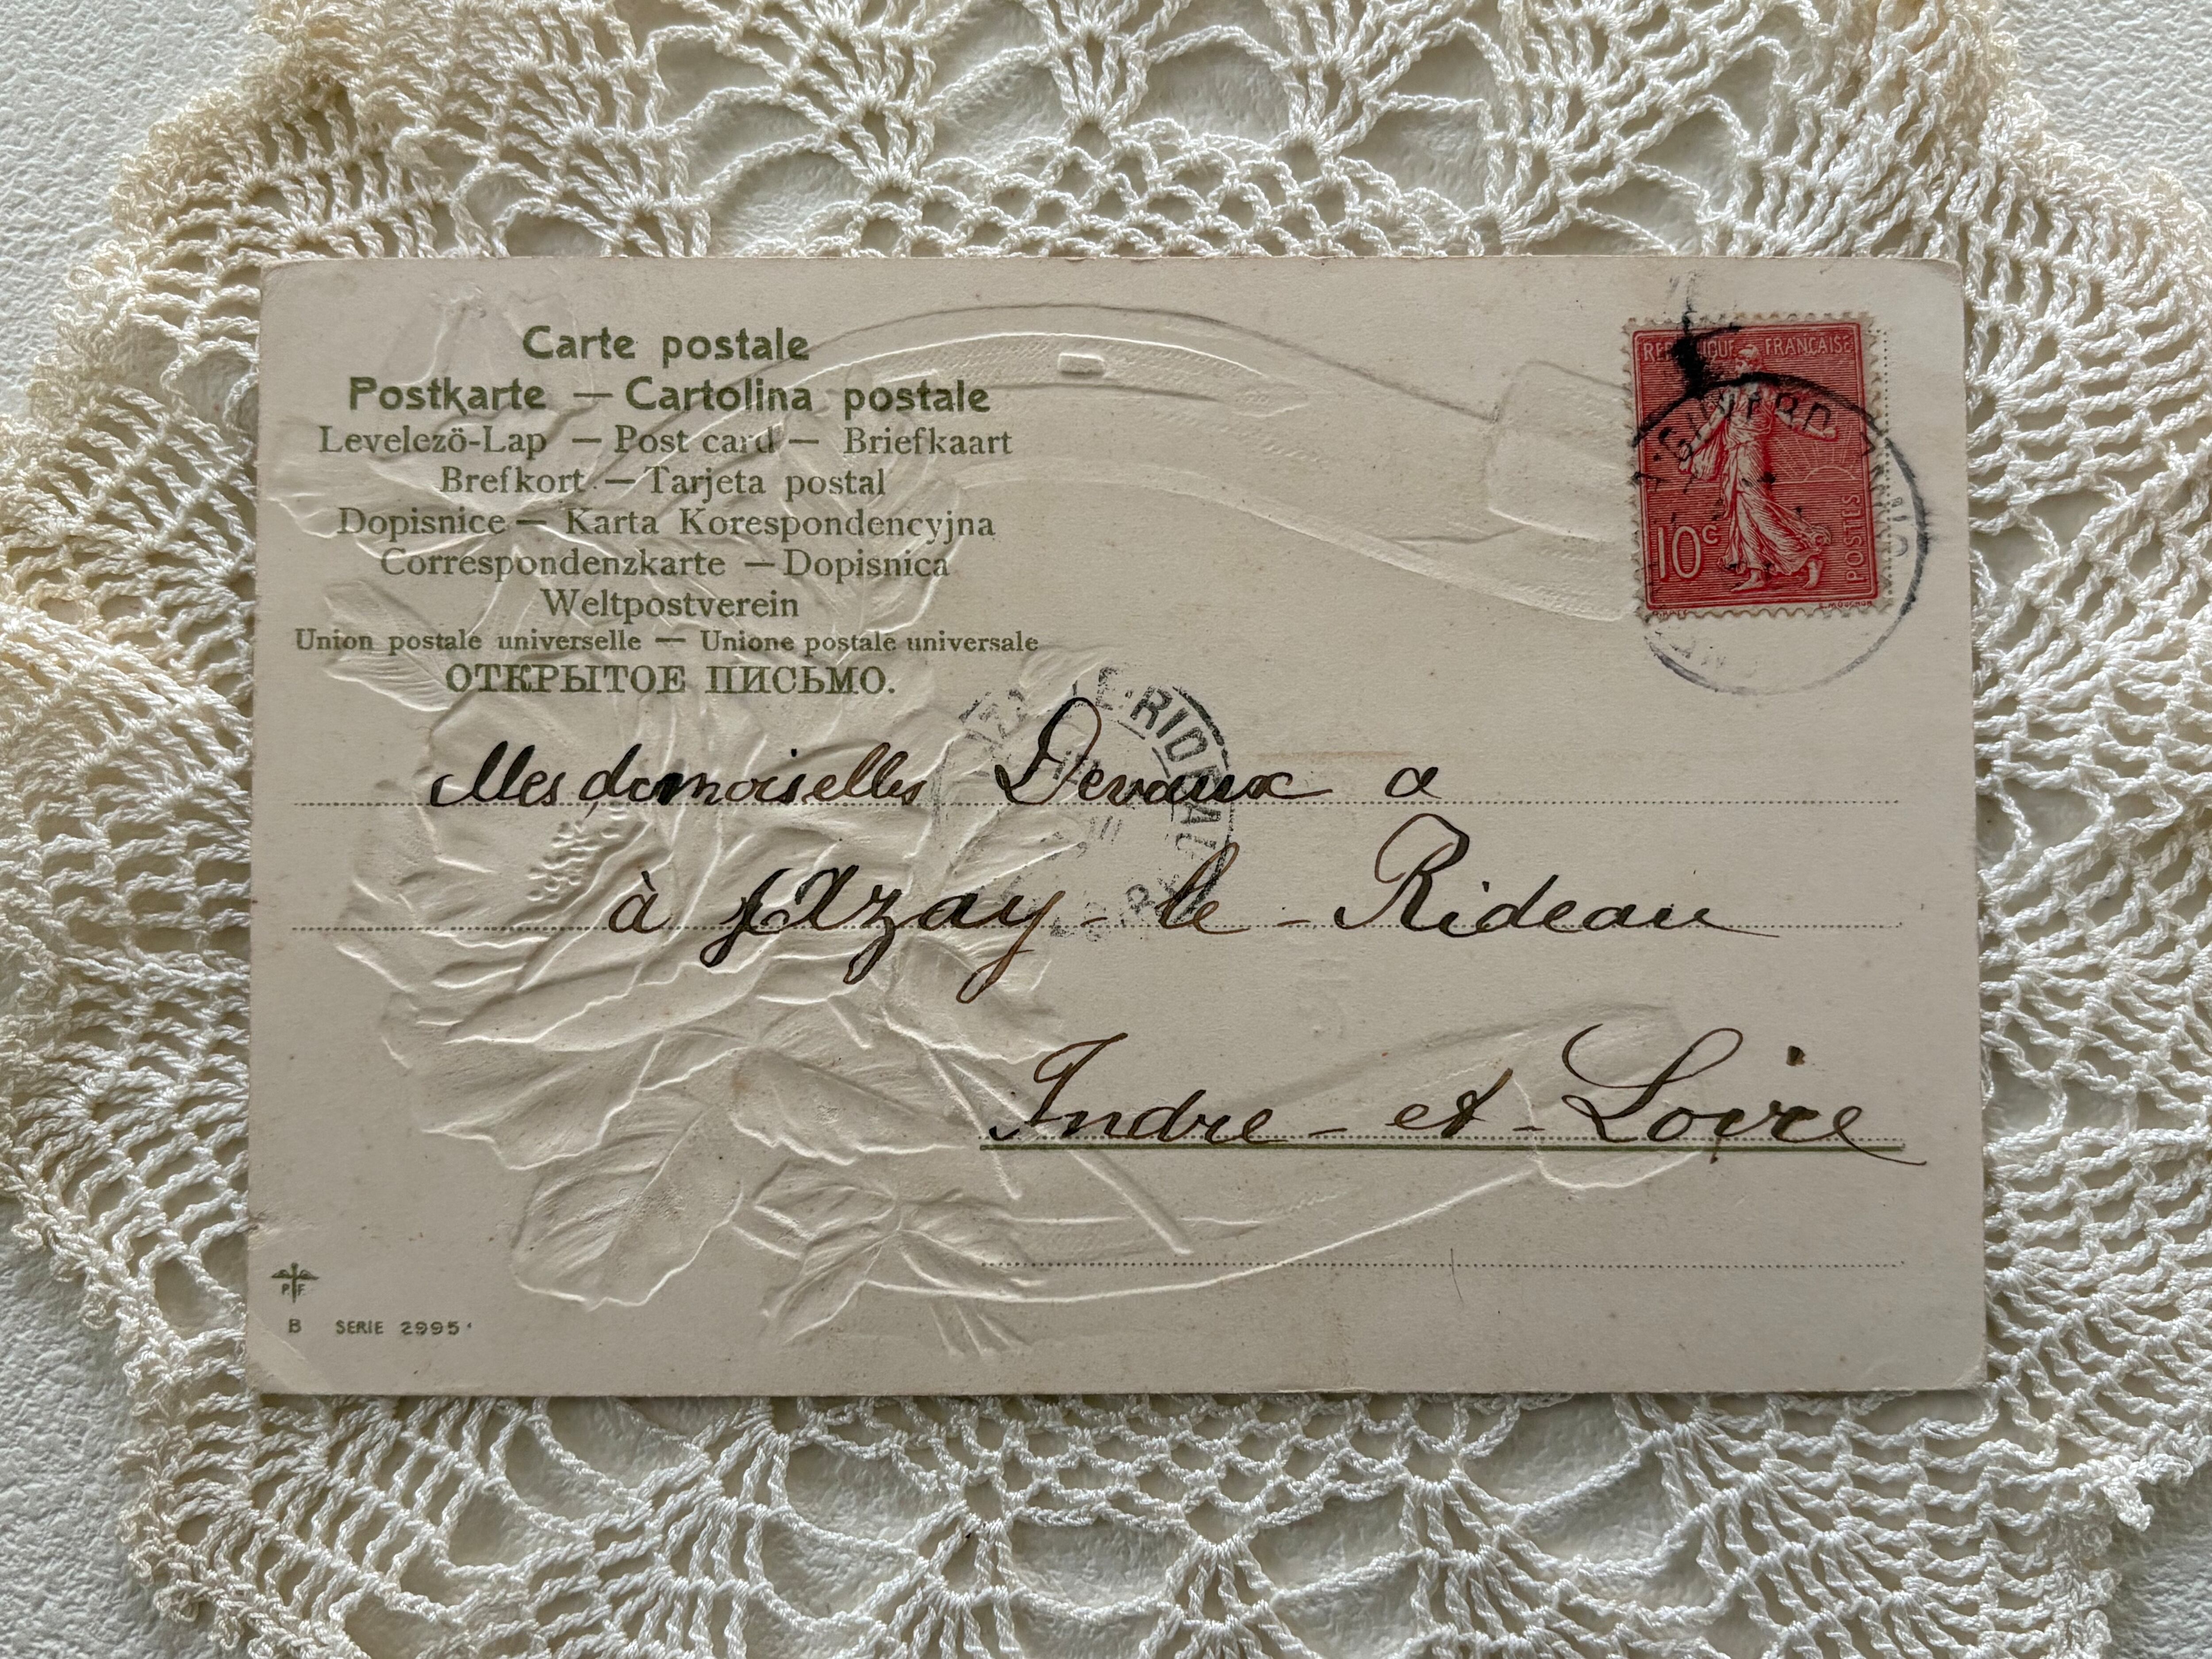 Carte postale
Postkarte — Cartolina postale
Levelezö-Lap — Post card — Briefkaart
Brefkort — Tarjeta postal
Dopisnice — Karta Korespondencyjna
Correspondenzkarte — Dopisnica
Weltpostverein
Union postale universelle — Unione postale universale
ОТКРЫТОЕ ПИСЬМО.
REPUBLIQUE FRANÇAISE
10c
POSTES
LE-RIDEAU
Mesdemoiselles Devaux a
à Azay-le-Rideau
Indre-et-Loire
P F
B SERIE 2995